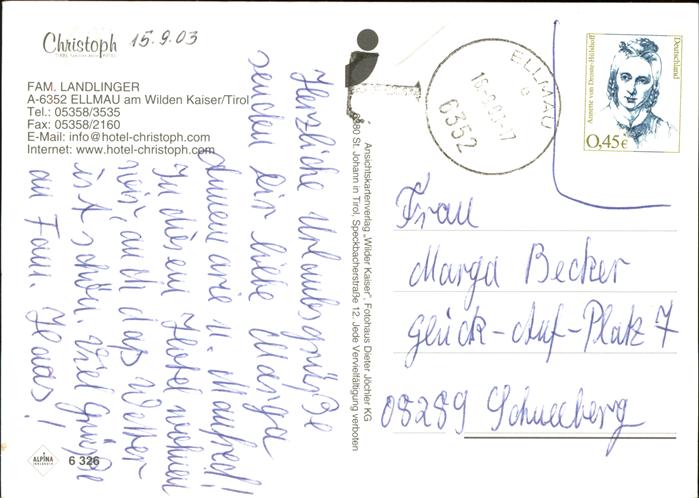 Christoph
15.9.03
FAM. LANDLINGER
A-6352 ELLMAU am Wilden Kaiser/Tirol
Tel.: 05358/3535
Fax: 05358/2160
E-Mail: info@hotel-christoph.com
Internet: www.hotel-christoph.com
Herzliche Urlaubsgrüße
senden Dir liebe Marga
u. Manfred!
In diesem Hotel wohnen
wir, auch das Wetter
ist schön. Viel Grüße
an Fam. Haas!
ALPINA
6 326
Ansichtskartenverlag „Wilder Kaiser", Fotohaus Dieter Jöchler KG
6380 St. Johann in Tirol, Speckbacherstraße 12. Jede Vervielfältigung verboten
ELLMAU
6352
Deutschland
Annette von Droste-Hülshoff
0,45€
Frau
Marga Becker
Glück-Auf-Platz 7
08289 Schneeberg